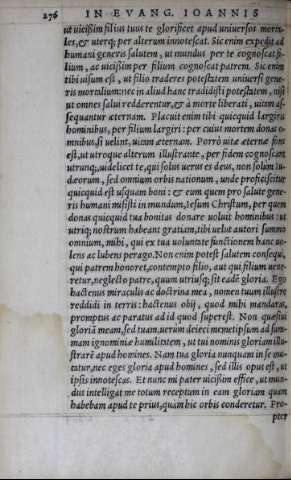 276 IN EVANG. IOANNIS
ut uicißim filius tuus te glorificet apud uniuersos morta-
les, & uterq; per alterum innotescat. Sic enim expedit ad
humani generis salutem, ut mundus per te cognoscat fi-
lium, ac uicißim per filium cognoscat patrem. Sic enim
tibi uisum est, ut filio traderes potestatem uniuersi gene-
ris mortalium: nec in aliud hanc tradidisti potestatem, nisi
ut omnes salui redderentur, & à morte liberati, uitam as-
sequantur æternam. Placuit enim tibi quicquid largiris
hominibus, per filium largiri: per cuius mortem donas o-
mnibus, si uelint, uitam æternam. Porrò uitæ æternæ fons
est, ut utroque alterum illustrante, per fidem cognoscant
utrunq;, uidelicet te, qui solus uerus es deus, non solum Iu-
dæorum, sed omnium orbis nationum, unde proficiscitur
quicquid est usquam boni: & eum quem pro salute gene-
ris humani misisti in mundum, Iesum Christum, per quem
donas quicquid tua bonitas donare uoluit hominibus: ut
utriq; nostrum habeant gratiam, tibi uelut autori summo
omnium, mihi, qui ex tua uoluntate functionem hanc uo-
lens ac lubens perago. Non enim potest salutem consequi,
qui patrem honoret, contempto filio, aut qui filium uene-
retur, neglecto patre, quum utriusq; sit eadē gloria. Ego
hactenus miraculis ac doctrina mea, nomen tuum illustre
reddidi in terris: hactenus obij, quod mihi mandaras,
promptus ac paratus ad id quod superest. Non quæsiui
gloriā meam, sed tuam, uerùm deieci memetipsum ad sum-
mam ignominiæ humilitatem, ut tui nominis gloriam illu-
strarē apud homines. Nam tua gloria nunquam in se mu-
tatur, nec eges gloria apud homines, sed illis opus est, ut
ipsis innotescas. Et nunc mi pater uicißim effice, ut mun-
dus intelligat me totum receptum in eam gloriam quam
habebam apud te prius, quàm hic orbis conderetur. Pro-
pter